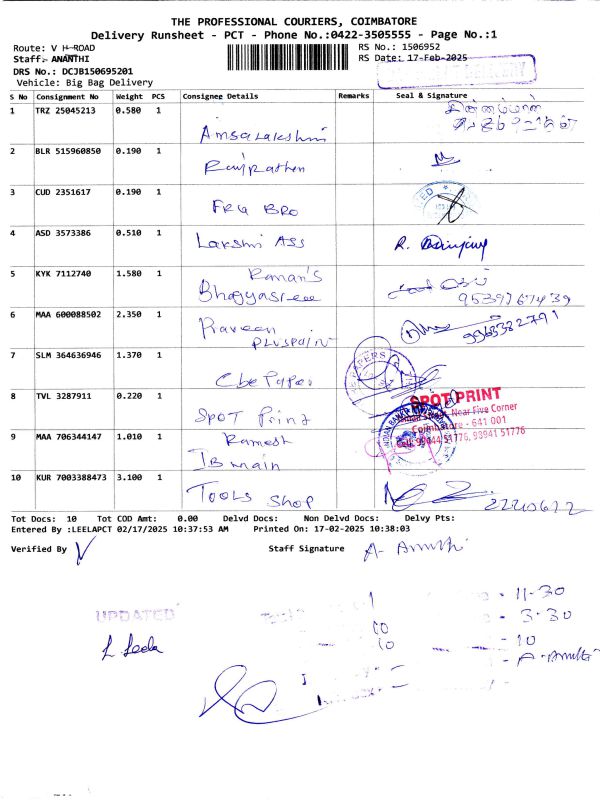 THE PROFESSIONAL COURIERS, COIMBATORE
Delivery Runsheet - PCT - Phone No.:0422-3505555 - Page No.:1
Route: V H-ROAD
RS No.: 1506952
Staff:- ANANTHI
RS Date: 17-Feb-2025
DRS No.: DCJB150695201
Vehicle: Big Bag Delivery
S No Consignment No Weight PCS Consignee Details Remarks Seal & Signature
1 TRZ 25045213 0.580 1 Amsalakshmi
2 BLR 515960850 0.190 1
3 CUD 2351617 0.190 1 FRG BRO
4 ASD 3573386 0.510 1 Lakshmi Ass R.
5 KYK 7112740 1.580 1 Raman's
Bhagyasree 9539767439
6 MAA 600088502 2.350 1 Praveen
PLUSPOINT 9965382791
7 SLM 364636946 1.370 1 Cbe Paper
8 TVL 3287911 0.220 1 Spot Print
SPOT PRINT
Near Five Corner
Coimbatore - 641 001
Cell: 99944 51776, 93941 51776
9 MAA 706344147 1.010 1 Ramesh
IB main
10 KUR 7003388473 3.100 1 Tools Shop 2220612
Tot Docs: 10 Tot COD Amt: 0.00 Delvd Docs: Non Delvd Docs: Delvy Pts:
Entered By :LEELAPCT 02/17/2025 10:37:53 AM Printed On: 17-02-2025 10:38:03
Verified By Staff Signature A- Ananthi
- 11-30
UPDATED
- 3-30
10
10 - 10
L Leela - A-Ananthi